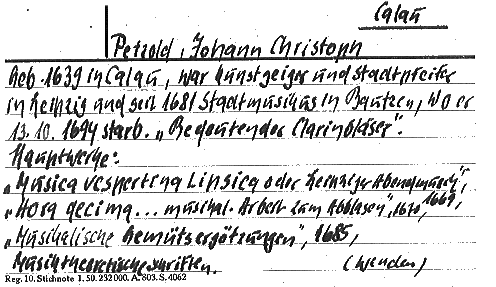 Calau
Petzold, Johann Christoph
Geb. 1639 in Calau, war Kunstgeiger und Stadtpfeifer
in Leipzig und seit 1681 Stadtmusikus in Bautzen, wo er
13. 10. 1694 starb. „Bedeutender Clarinbläser".
Hauptwerke:
„Musica vespertina Lipsica oder Leipziger Abendmusik",
„Hora decima... musikal. Arbeit zum Abblasen", 1670, 1669,
„Musikalische Gemütsergötzungen", 1685,
Musiktheoretische Schriften. (Wenden)
Reg. 10. Stichnote 1. 50. 232 000. A. 803. S. 4062